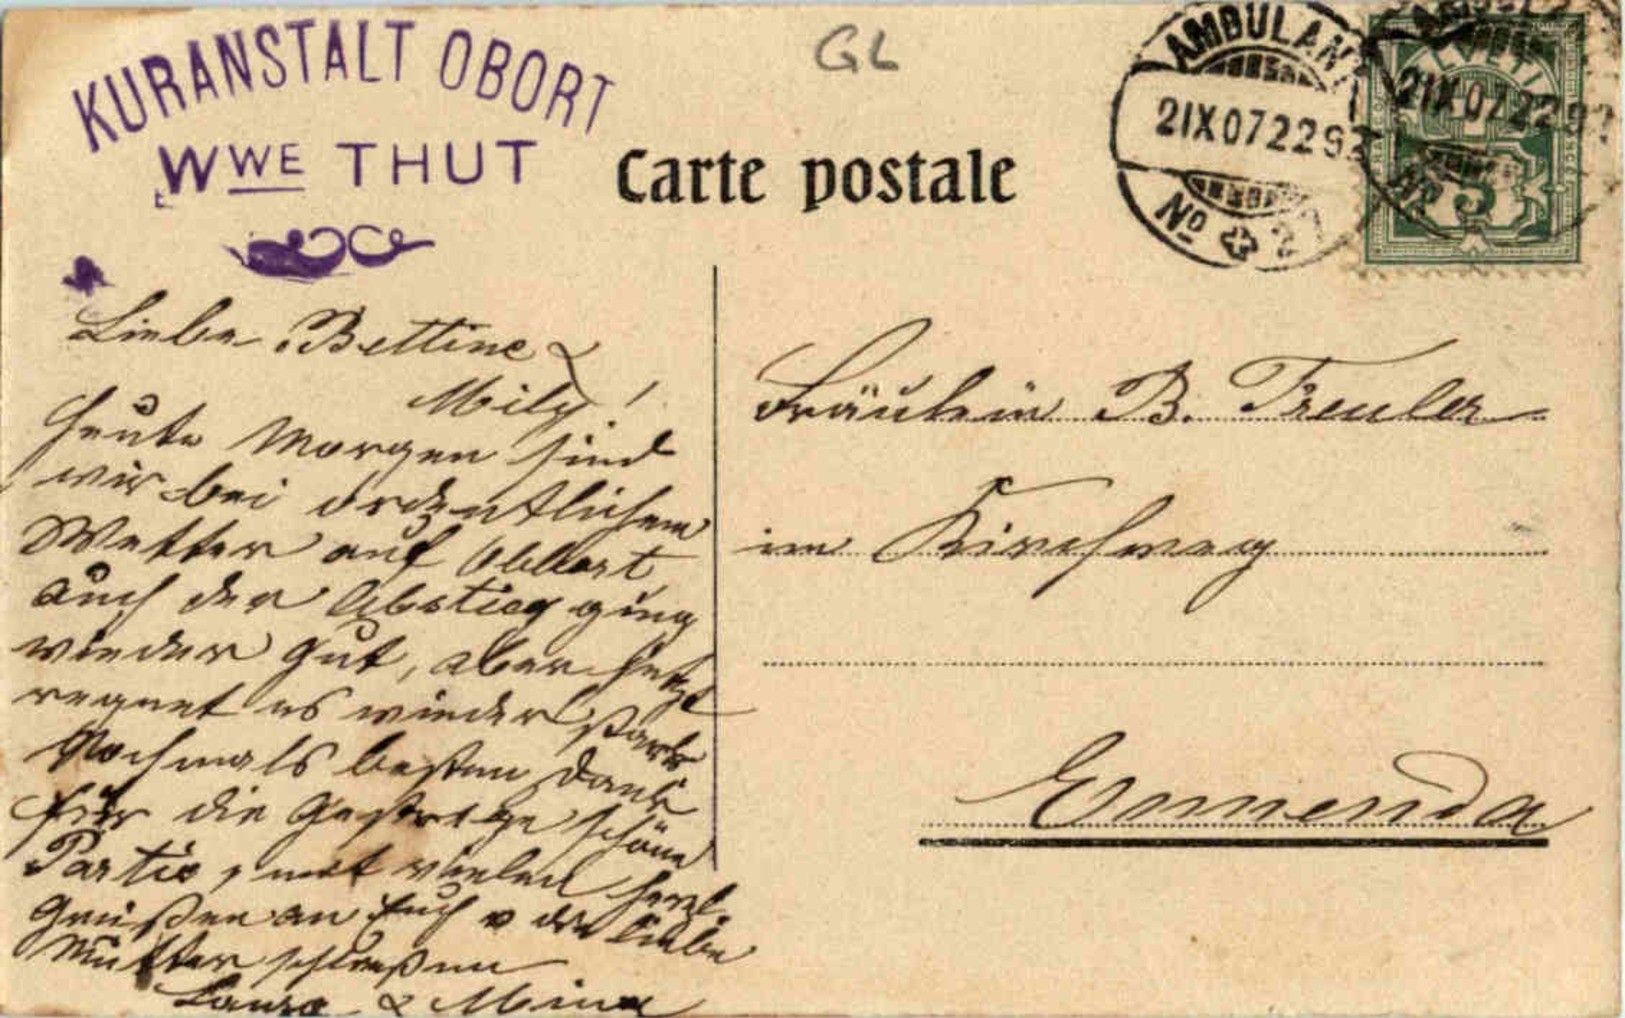 KURANSTALT OBORT
WWE THUT
GL
Carte postale
AMBULANT
21 IX 07 22
No 2
HELVETIA
5
Liebe Bettine &
Mily!
Heute Morgen sind
wir bei ordentlichem
Wetter auf
auch der Abstieg ging
wieder gut, aber jetzt
regnet es wieder stark
Nochmals besten Dank
für die Gestrige schöne
Partie, mit vielen herzl.
Grüßen an Euch & die liebe
Mutter schließen
Laura & Mina
Fräulein B. Treuler
im Kirchweg
Ennenda